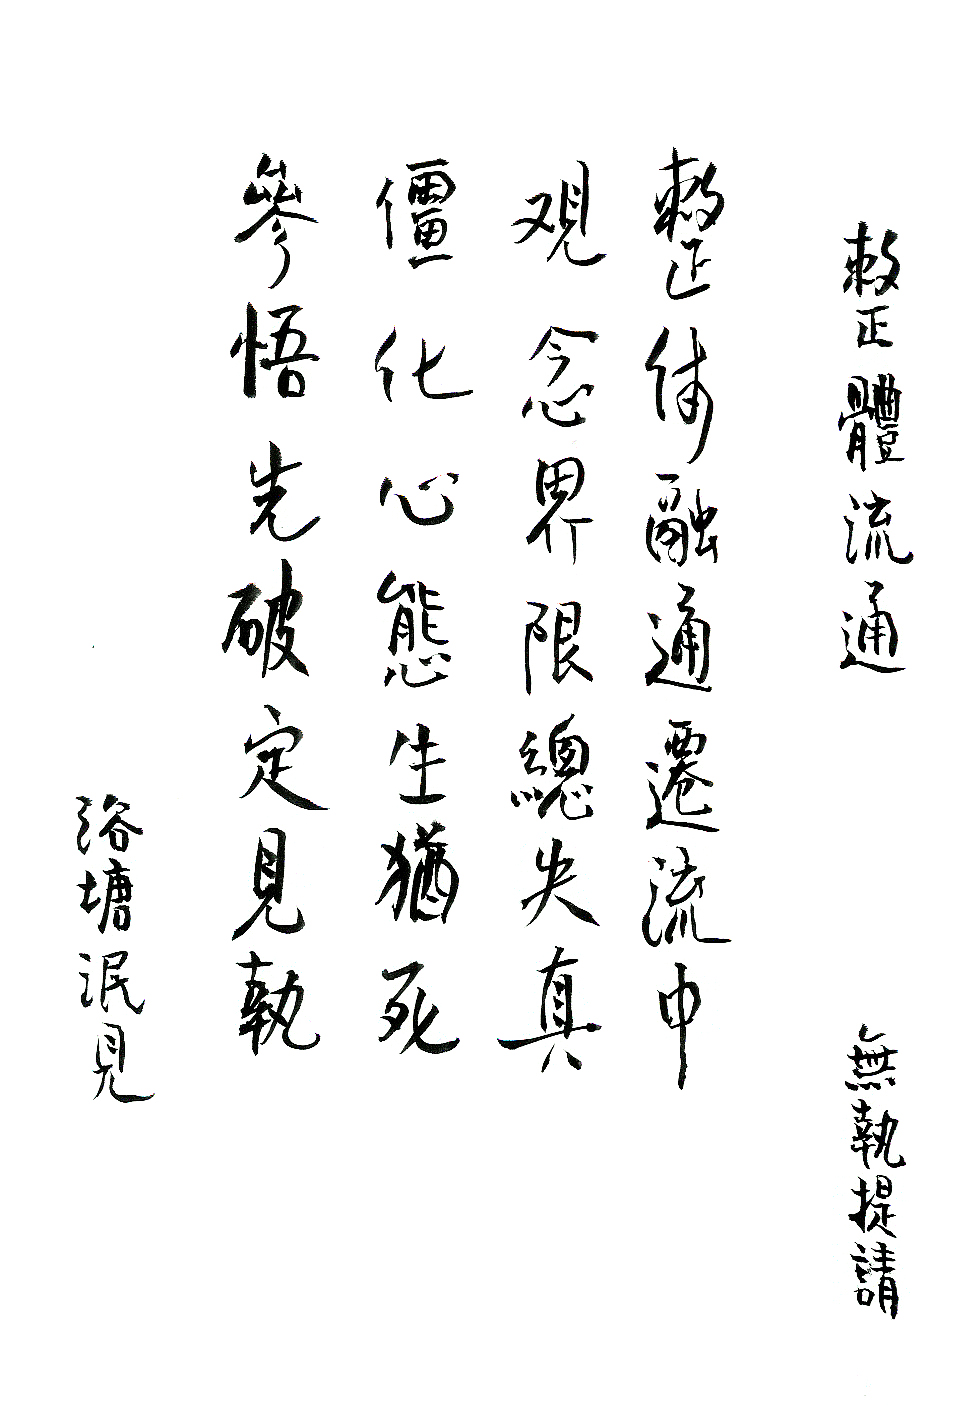 整體流通
無執提請
整体融通遷流中
观念界限總失真
僵化心態生猶死
參悟先破定見執
浴塘泯見